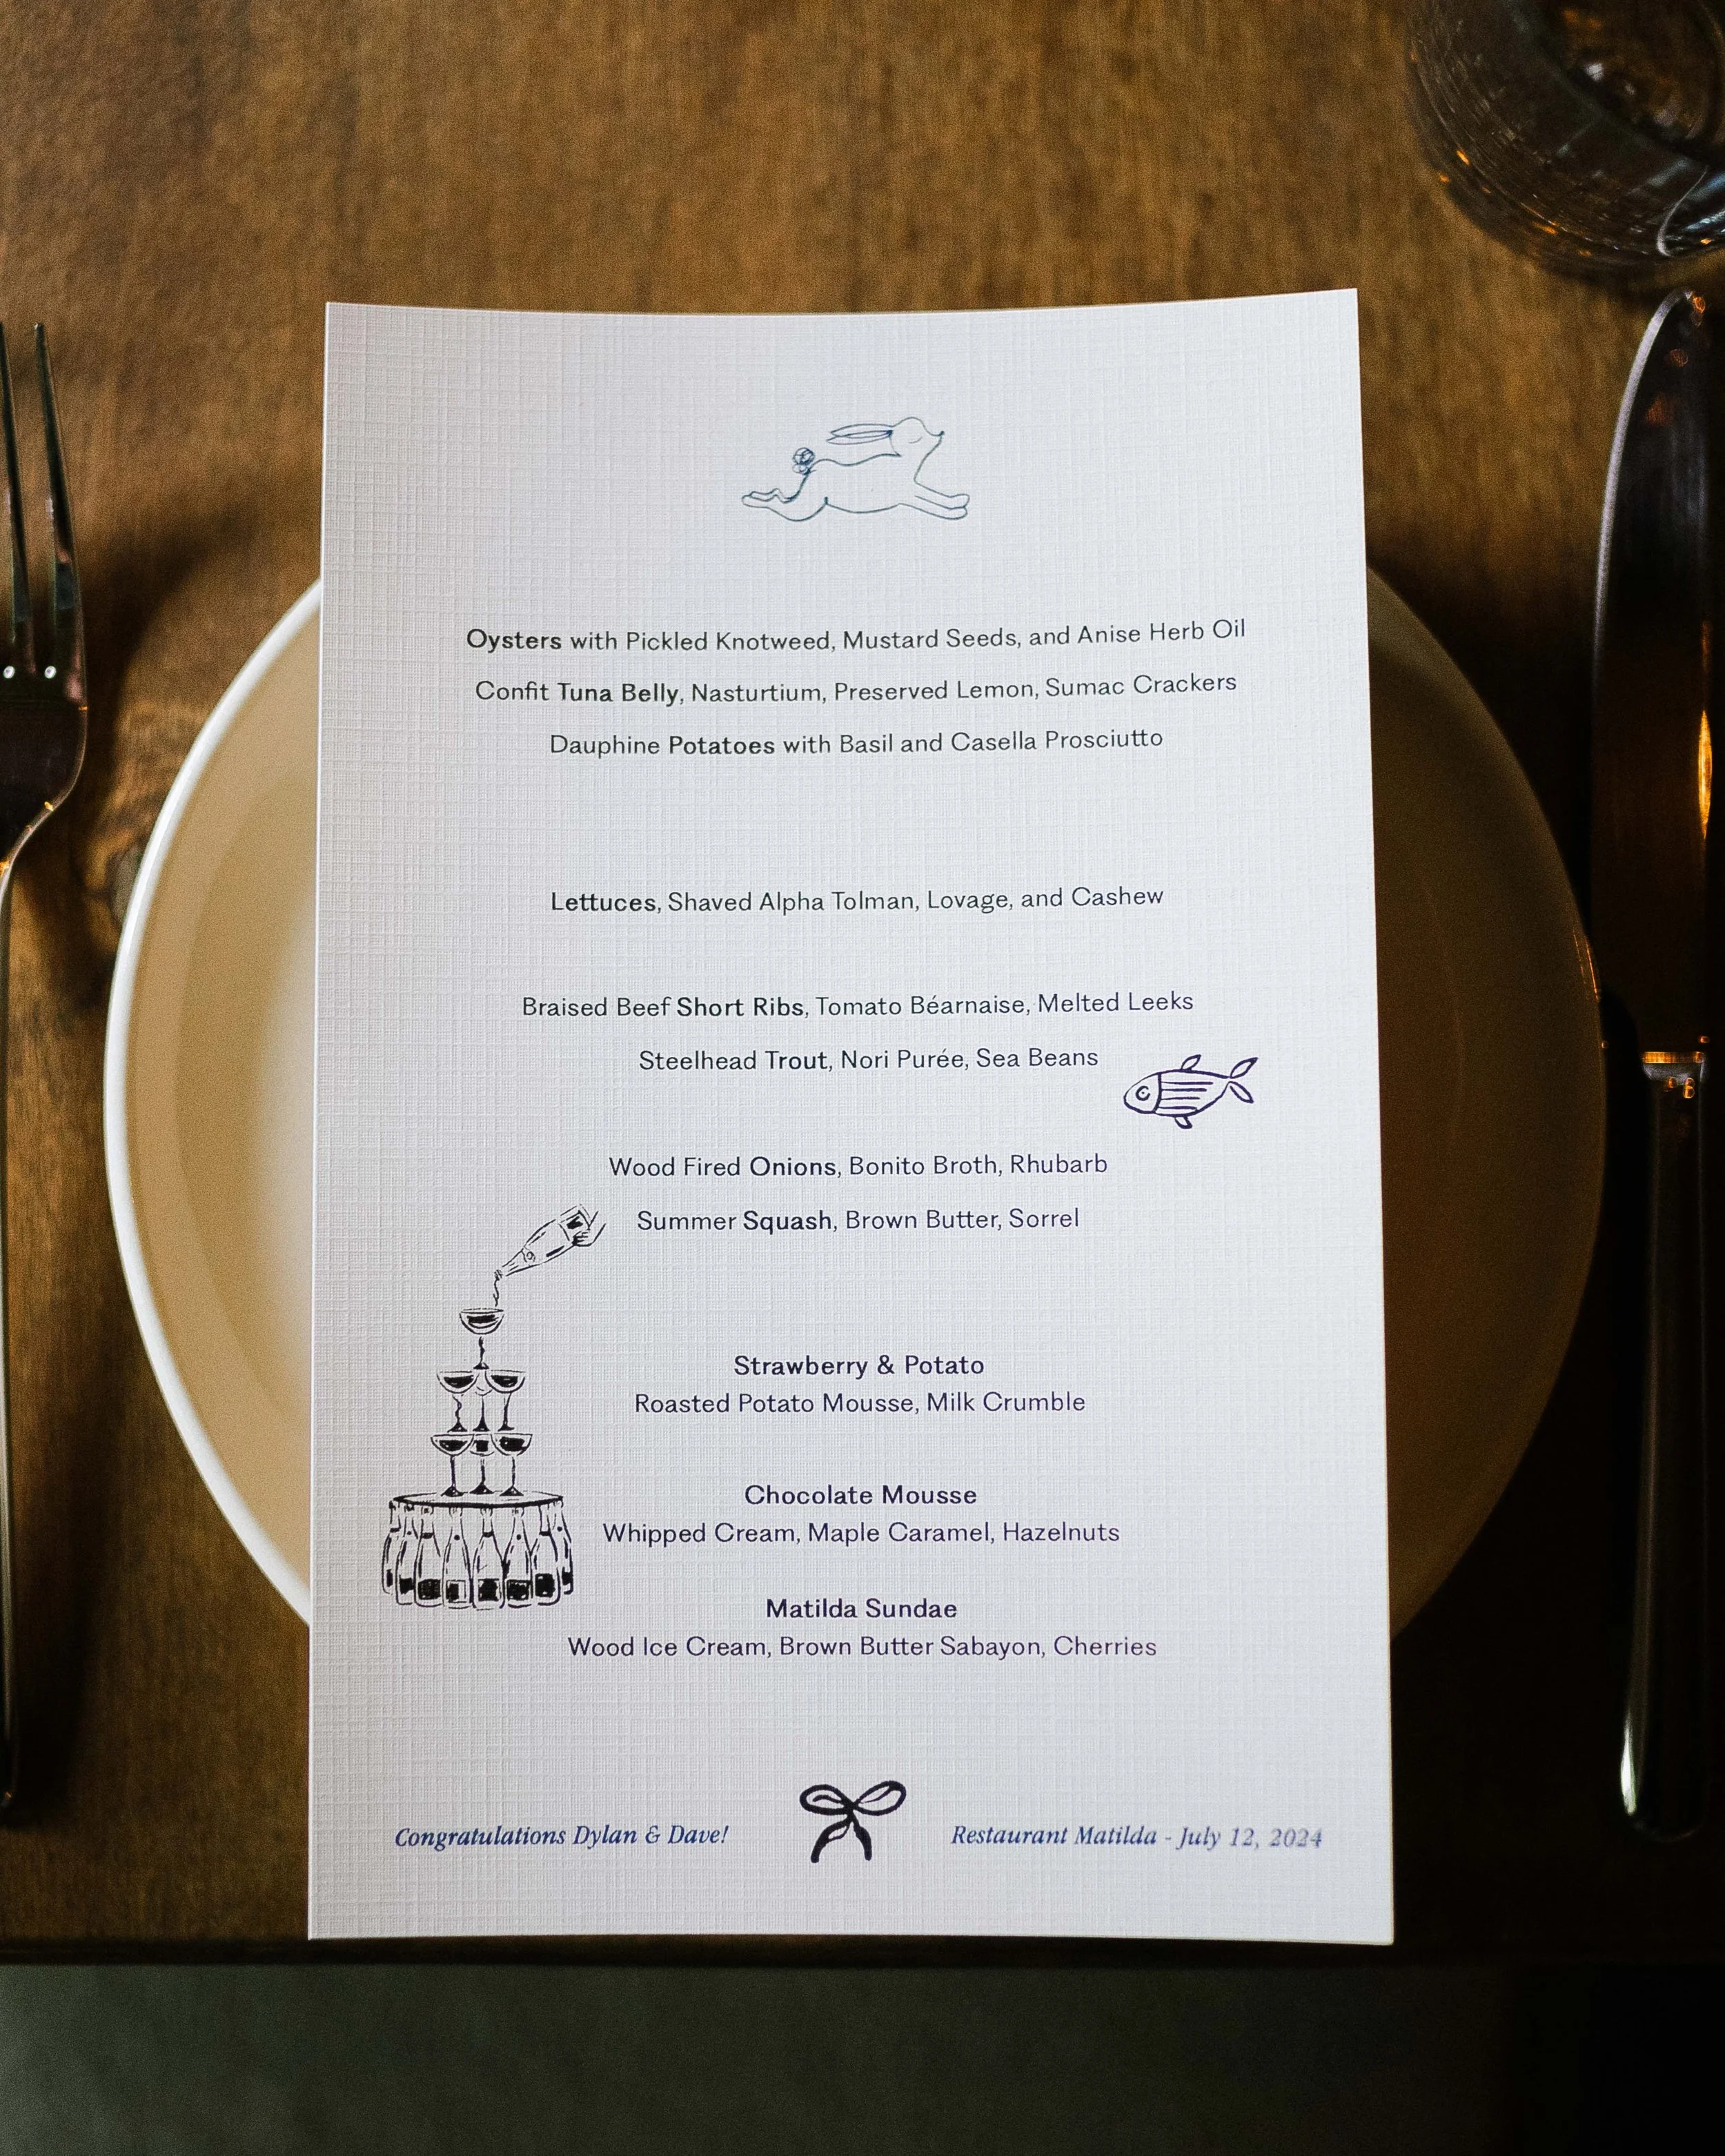 Oysters with Pickled Knotweed, Mustard Seeds, and Anise Herb Oil
Confit Tuna Belly, Nasturtium, Preserved Lemon, Sumac Crackers
Dauphine Potatoes with Basil and Casella Prosciutto
Lettuces, Shaved Alpha Tolman, Lovage, and Cashew
Braised Beef Short Ribs, Tomato Béarnaise, Melted Leeks
Steelhead Trout, Nori Purée, Sea Beans
Wood Fired Onions, Bonito Broth, Rhubarb
Summer Squash, Brown Butter, Sorrel
Strawberry & Potato
Roasted Potato Mousse, Milk Crumble
Chocolate Mousse
Whipped Cream, Maple Caramel, Hazelnuts
Matilda Sundae
Wood Ice Cream, Brown Butter Sabayon, Cherries
Congratulations Dylan & Dave!
Restaurant Matilda - July 12, 2024